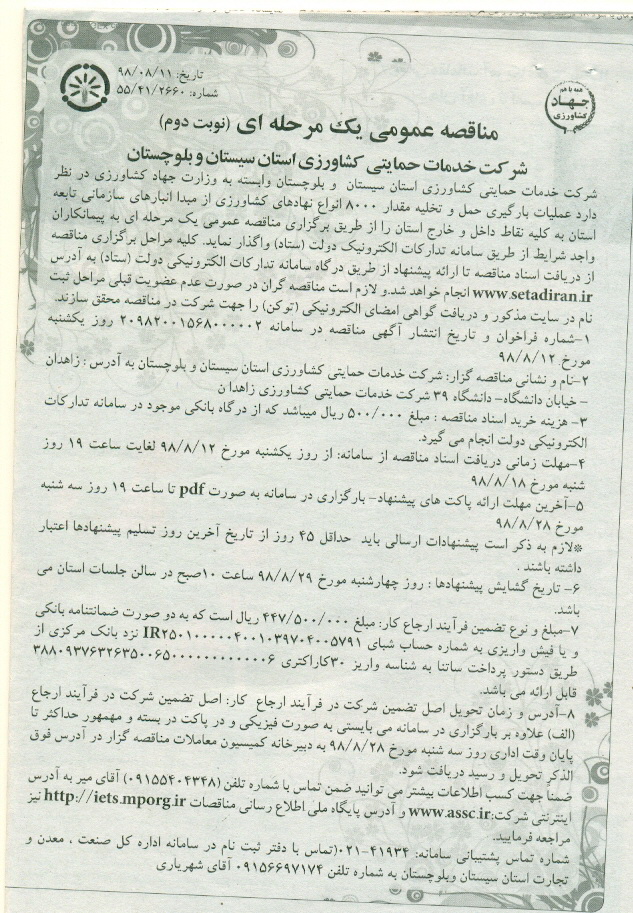 تاریخ: ۹۸/۰۸/۱۱
شماره: ۵۵/۴۱/۲۶۶۰
همه با هم
جهاد
کشاورزی
مناقصه عمومی یک مرحله ای (نوبت دوم)
شرکت خدمات حمایتی کشاورزی استان سیستان و بلوچستان
شرکت خدمات حمایتی کشاورزی استان سیستان و بلوچستان وابسته به وزارت جهاد کشاورزی در نظر
دارد عملیات بارگیری حمل و تخلیه مقدار ۸۰۰۰ انواع نهادهای کشاورزی از مبدا انبارهای سازمانی تابعه
استان به کلیه نقاط داخل و خارج استان را از طریق برگزاری مناقصه عمومی یک مرحله ای به پیمانکاران
واجد شرایط از طریق سامانه تدارکات الکترونیک دولت (ستاد) واگذار نماید. کلیه مراحل برگزاری مناقصه
از دریافت اسناد مناقصه تا ارائه پیشنهاد از طریق درگاه سامانه تدارکات الکترونیکی دولت (ستاد) به آدرس
www.setadiran.ir انجام خواهد شد.و لازم است مناقصه گران در صورت عدم عضویت قبلی مراحل ثبت
نام در سایت مذکور و دریافت گواهی امضای الکترونیکی (توکن) را جهت شرکت در مناقصه محقق سازند.
۱-شماره فراخوان و تاریخ انتشار آگهی مناقصه در سامانه ۲۰۹۸۲۰۰۱۵۶۸۰۰۰۰۰۲ روز یکشنبه
مورخ ۹۸/۸/۱۲
۲-نام و نشانی مناقصه گزار: شرکت خدمات حمایتی کشاورزی استان سیستان و بلوچستان به آدرس : زاهدان
– خیابان دانشگاه- دانشگاه ۳۹ شرکت خدمات حمایتی کشاورزی زاهدان
۳- هزینه خرید اسناد مناقصه : مبلغ ۵۰۰/۰۰۰ ریال میباشد که از درگاه بانکی موجود در سامانه تدارکات
الکترونیکی دولت انجام می گیرد.
۴-مهلت زمانی دریافت اسناد مناقصه از سامانه: از روز یکشنبه مورخ ۹۸/۸/۱۲ لغایت ساعت ۱۹ روز
شنبه مورخ ۹۸/۸/۱۸
۵-آخرین مهلت ارائه پاکت های پیشنهاد- بارگزاری در سامانه به صورت pdf تا ساعت ۱۹ روز سه شنبه
مورخ ۹۸/۸/۲۸
*لازم به ذکر است پیشنهادات ارسالی باید حداقل ۴۵ روز از تاریخ آخرین روز تسلیم پیشنهادها اعتبار
داشته باشند .
۶- تاریخ گشایش پیشنهادها : روز چهارشنبه مورخ ۹۸/۸/۲۹ ساعت ۱۰صبح در سالن جلسات استان می
باشد.
۷-مبلغ و نوع تضمین فرآیند ارجاع کار: مبلغ ۴۴۷/۵۰۰/۰۰۰ ریال است که به دو صورت ضمانتنامه بانکی
و یا فیش واریزی به شماره حساب شبای IR۲۵۰۱۰۰۰۰۰۴۰۰۱۰۳۹۷۰۴۰۰۵۷۹۱ نزد بانک مرکزی از
طریق دستور پرداخت ساتنا به شناسه واریز ۳۰کاراکتری ۳۸۸۰۹۳۷۶۳۲۶۳۵۰۰۶۵۰۰۰۰۰۰۰۰۰۰۰۰۶
قابل ارائه می باشد.
۸-آدرس و زمان تحویل اصل تضمین شرکت در فرآیند ارجاع کار: اصل تضمین شرکت در فرآیند ارجاع
(الف) علاوه بر بارگزاری در سامانه می بایستی به صورت فیزیکی و در پاکت در بسته و مهمهور حداکثر تا
پایان وقت اداری روز سه شنبه مورخ ۹۸/۸/۲۸ به دبیرخانه کمیسیون معاملات مناقصه گزار در آدرس فوق
الذکر تحویل و رسید دریافت شود.
ضمناً جهت کسب اطلاعات بیشتر می توانید ضمن تماس با شماره تلفن (۰۹۱۵۵۴۰۴۳۴۸) آقای میر به آدرس
اینترنتی شرکت:www.assc.ir و آدرس پایگاه ملی اطلاع رسانی مناقصات http://iets.mporg.ir نیز
مراجعه فرمایید.
شماره تماس پشتیبانی سامانه: ۴۱۹۳۴-۰۲۱(تماس با دفتر ثبت نام در سامانه اداره کل صنعت ، معدن و
تجارت استان سیستان وبلوچستان به شماره تلفن ۰۹۱۵۶۶۹۷۱۷۴ آقای شهریاری